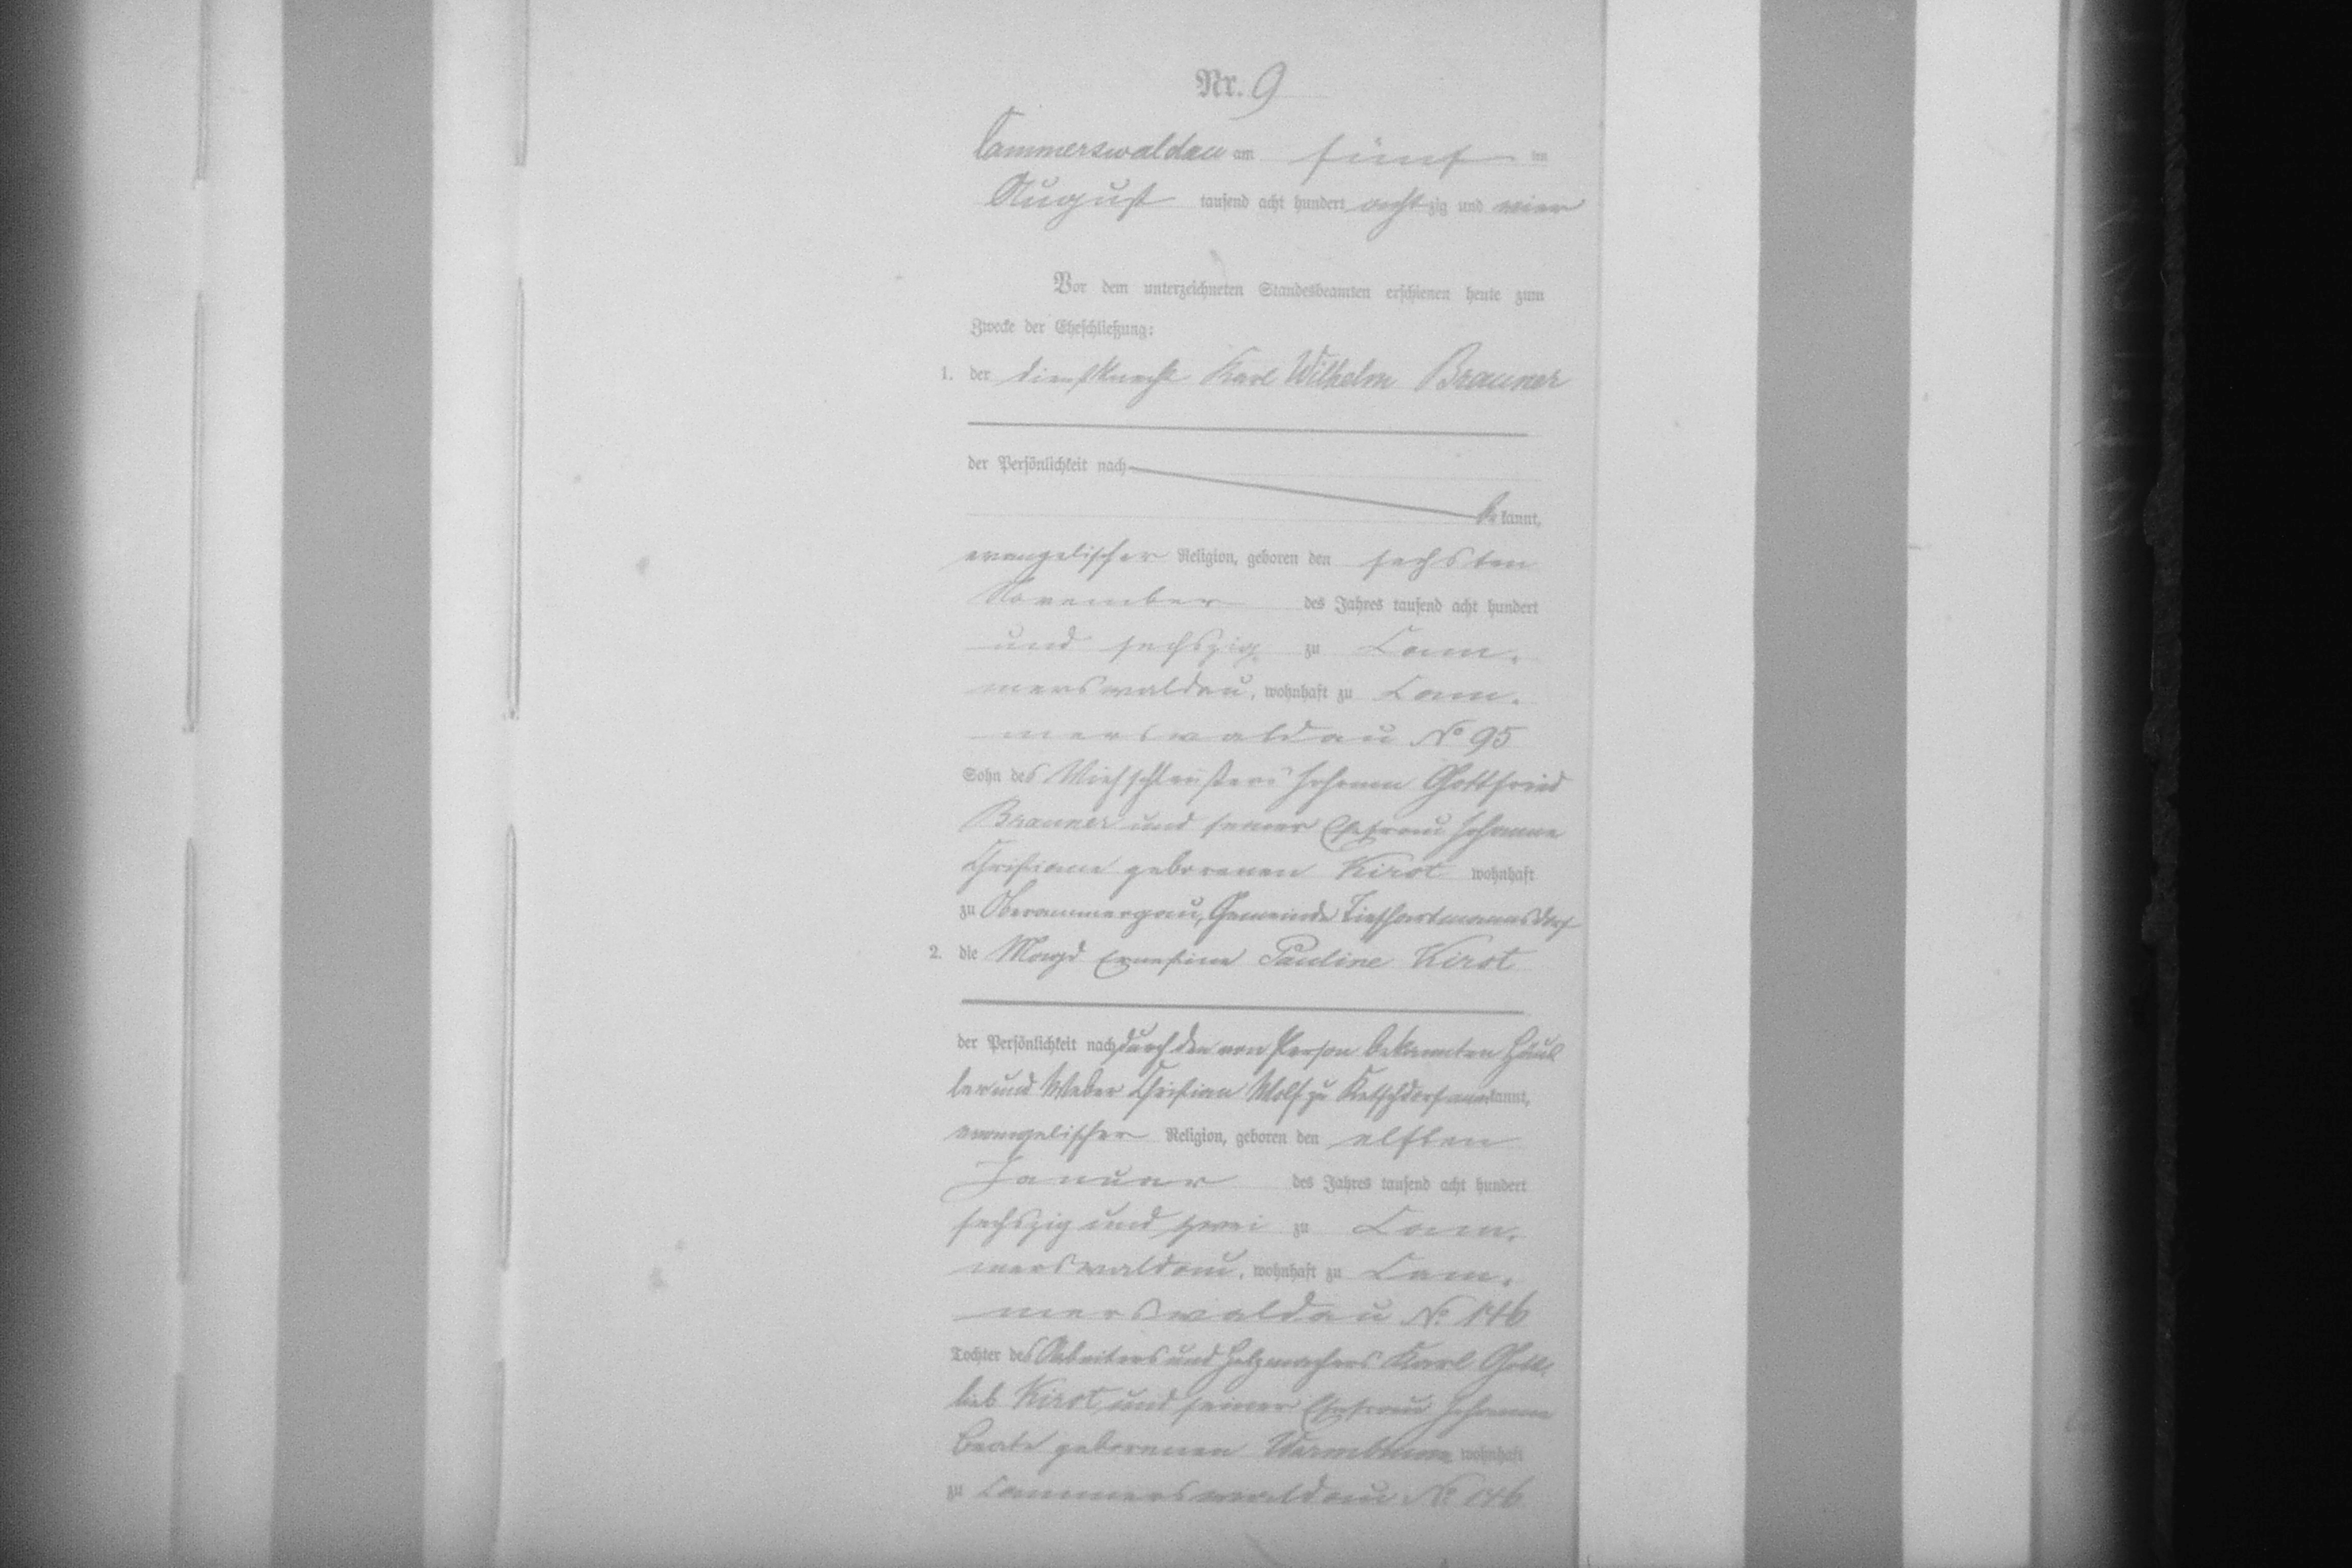 Nr. 9
Cammerswaldau am fünf ten
August tausend acht hundert achtzig und vier
Vor dem unterzeichneten Standesbeamten erschienen heute zum
Zwecke der Eheschließung:
1. der Dienstknecht Karl Wilhelm Brauner
der Persönlichkeit nach
be kannt,
evangelischer Religion, geboren den sechsten
November des Jahres tausend acht hundert
und sechszig zu Cam-
merswaldau, wohnhaft zu Cam-
merswaldau No 95
Sohn des Viehschleußers Johann Gottfried
Brauner und seiner Ehefrau Johanne
Christiane geborenen Kirst wohnhaft
zu Gemeinde Tiefhartmannsdorf
2. die Magd Ernestine Pauline Kirst
der Persönlichkeit nach durch den von Person bekannten Häus
ler und Weber Christian Wolf zu Ketschdorf anerkannt,
evangelischer Religion, geboren den elften
Januar des Jahres tausend acht hundert
sechszig und zwei zu Cam-
merswaldau, wohnhaft zu Cam-
merswaldau No. 146
Tochter des Arbeiters und Holzmachers Karl Gott-
lieb Kirst und seiner Ehefrau Johanne
Beate geborenen Warmbrunn wohnhaft
zu Cammerswaldau No 146